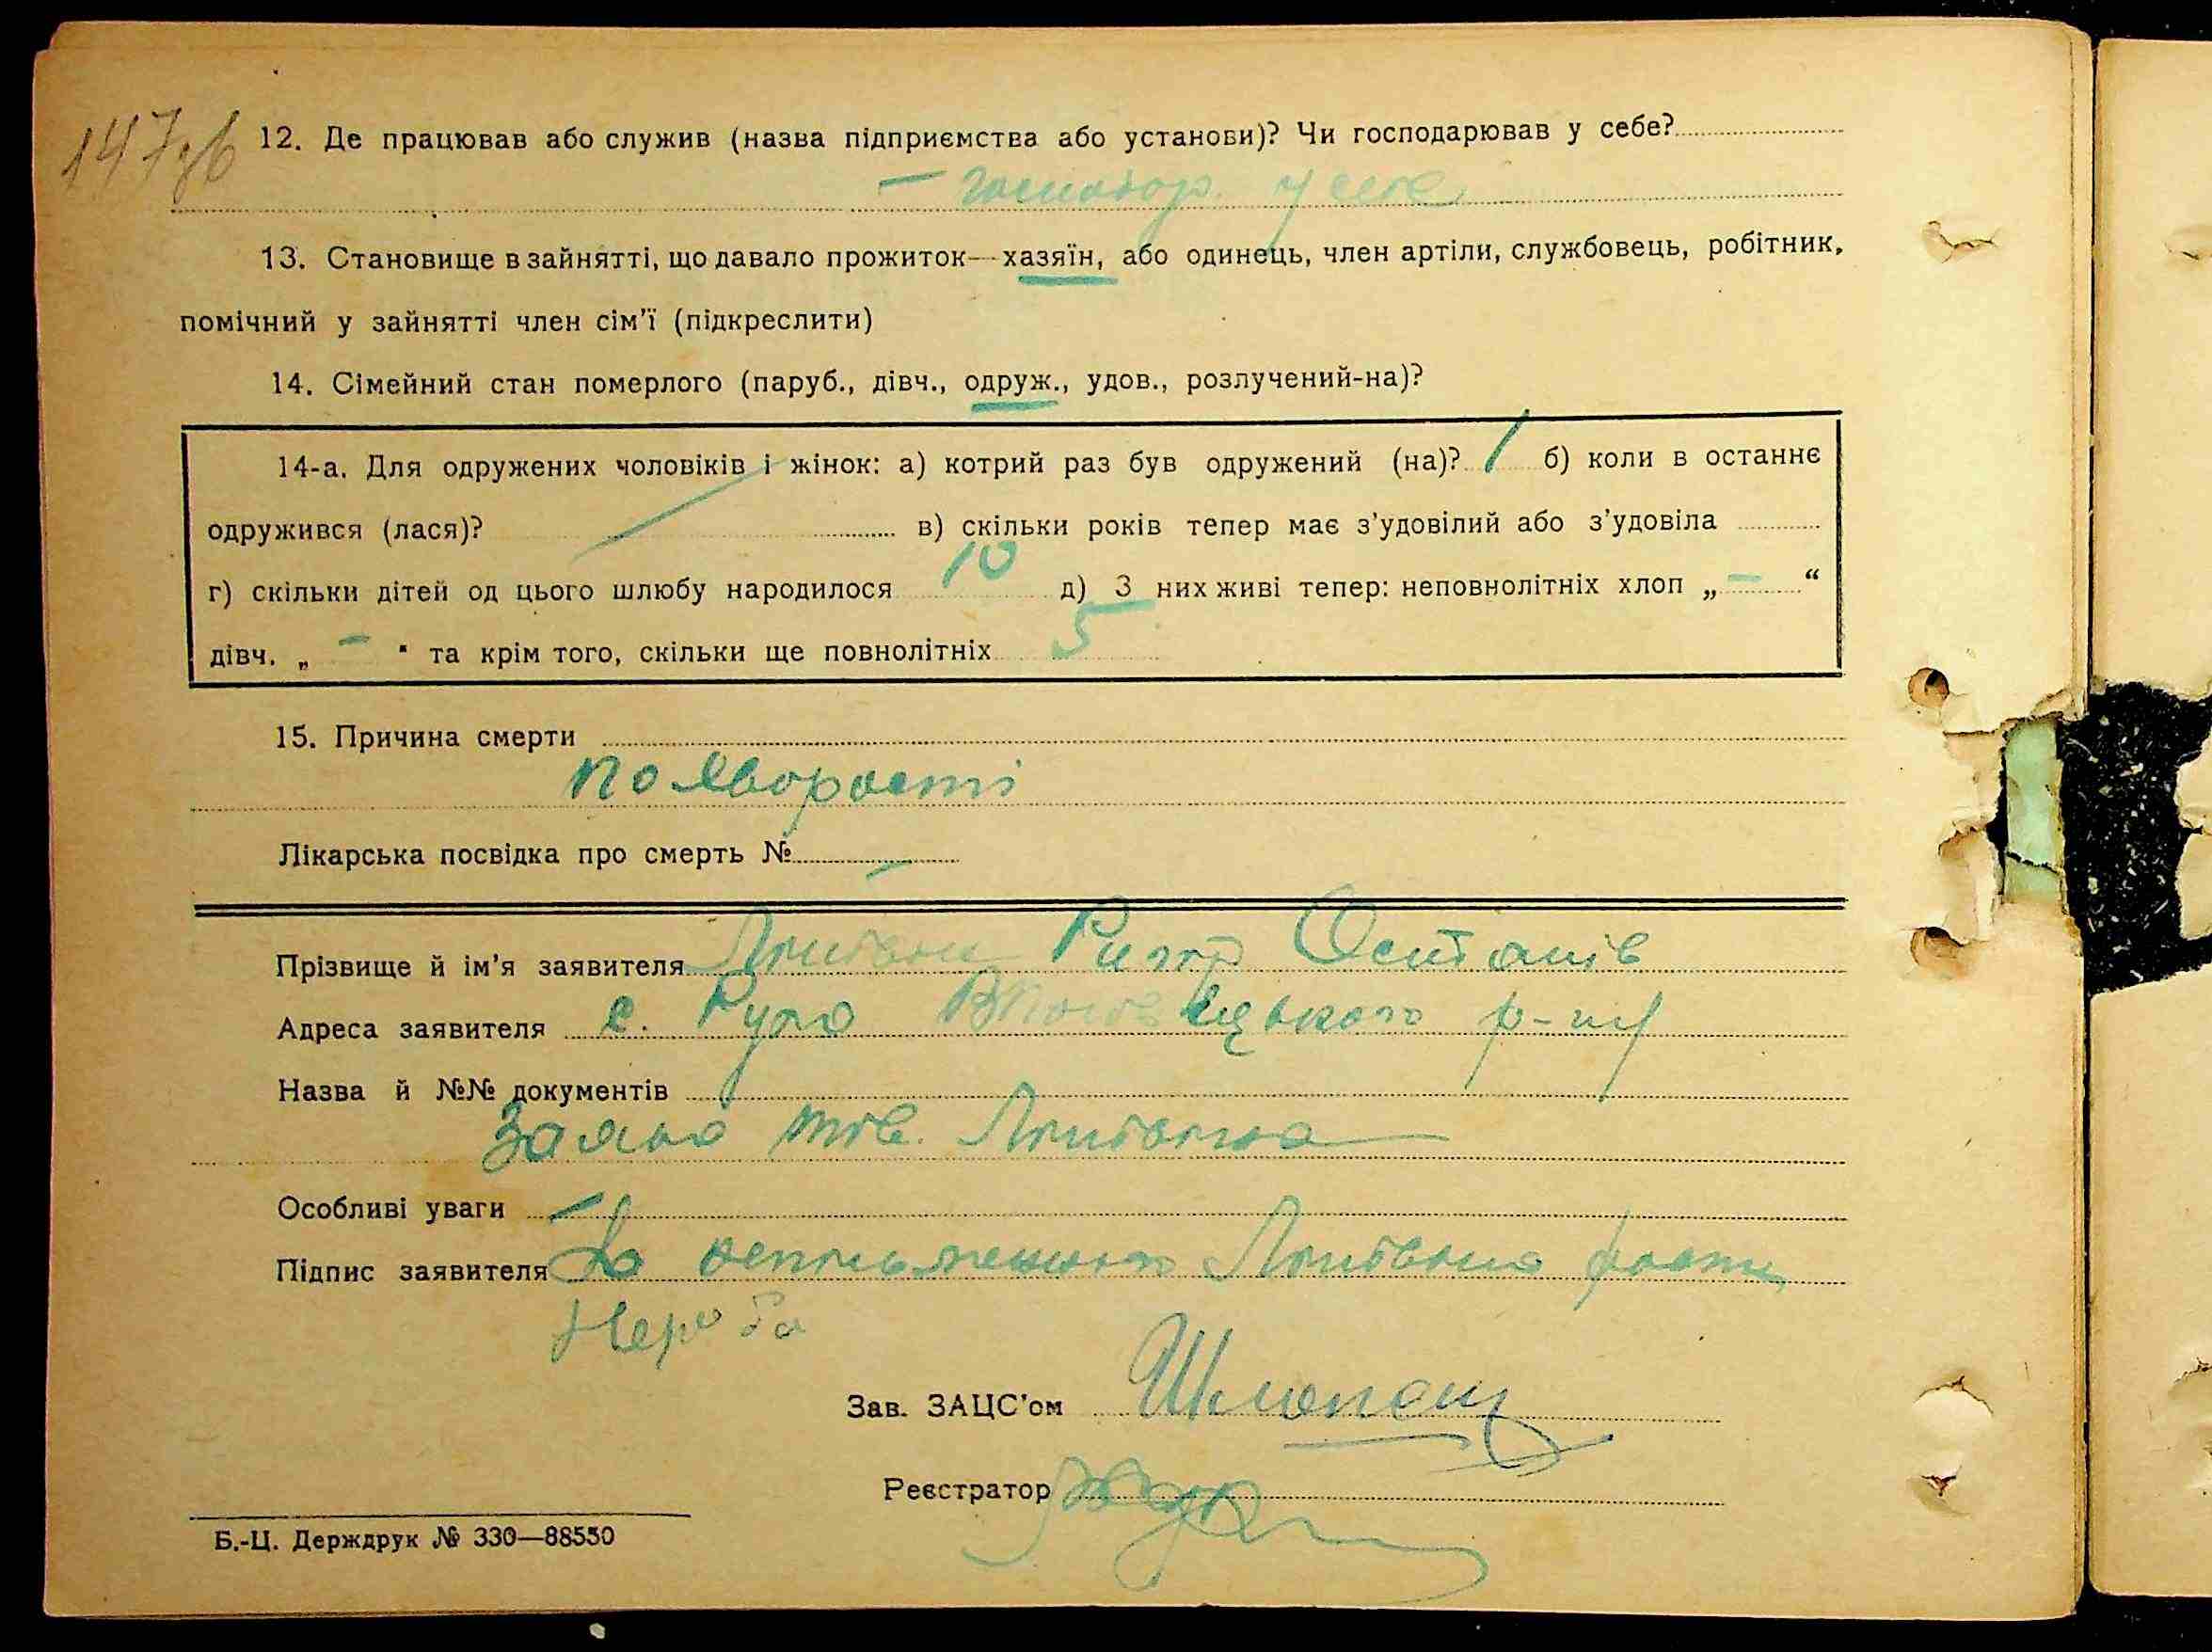 147зв
12. Де працював або служив (назва підприємства або установи)? Чи господарював у себе?
– господар. у себе
13. Становище в зайнятті, що давало прожиток—хазяїн, або одинець, член артіли, службовець, робітник,
помічний у зайнятті член сім'ї (підкреслити)
14. Сімейний стан померлого (паруб., дівч., одруж., удов., розлучений-на)?
14-а. Для одружених чоловіків і жінок: а) котрий раз був одружений (на)? 1 б) коли в останнє
одружився (лася)? — в) скільки років тепер має з'удовілий або з'удовіла
г) скільки дітей од цього шлюбу народилося 10 д) З них живі тепер: неповнолітніх хлоп „ – “
дівч. „ – " та крім того, скільки ще повнолітніх 5
15. Причина смерти
по хворості
Лікарська посвідка про смерть № –
Прізвище й ім'я заявителя Литвин
Адреса заявителя с. Рута р-ну
Назва й №№ документів
Заява тов. Литвина
Особливі уваги –
Підпис заявителя За неписьменного Литвина
Зав. ЗАЦС'ом
Реєстратор
Б.-Ц. Держдрук № 330—88550